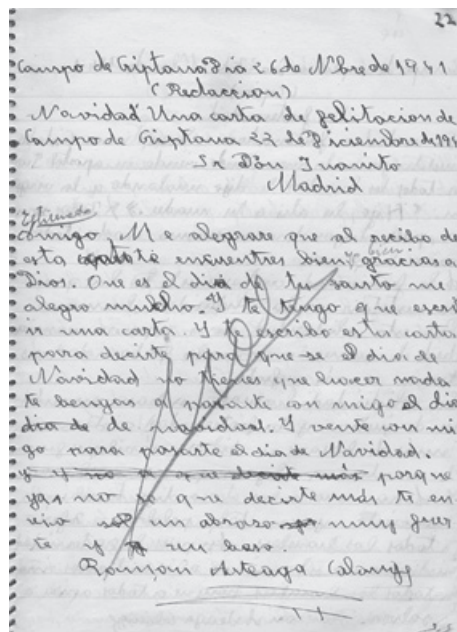 22
Campo de Criptana Dia 26 de Nbre de 1941
(Redaccion)
Navidad Una carta de felitacion de
Campo de Criptana 23 de Diciembre de 194
Sr Don Juanito
Madrid
Estimado
amigo Me alegrare que al recibo de
esta te encuentres bien yo bien gracias a
Dios. One es el dia de tu santo me
alegro mucho. Y te tengo que escri
ir una carta. Y te escribo esta carta
para decirte para que se el dia de
Navidad no tienes que hacer nada
te bengas a pasarte con migo el dia
dia de de navidad. Y vente con mi
go para pasarte el dia de Navidad.
y no decirte más porque
yas no se que decirte mas te en
vio un abrazo muy fuer
te y un beso
Román Arteaga